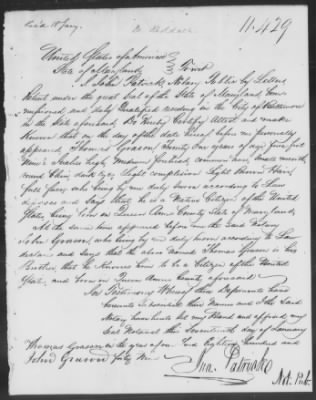 11.429
United States of America
State of Maryland
I John Patriakes Notary Public by Letters
Patent under the great Seal of the State of Maryland Com
missioned and duly Qualified residing in the City of Baltimore
in the State aforesaid, Do Hereby Certify Attest and make
Known that on the day of the date hereof before me personally
appeared Thomas Grason twenty One years of age five feet
Nine & high, Medium forehead, common nose, Small mouth,
round Chin, dark eyes Light complexion Light Brown Hair,
full face who being by me duly Sworn according to Law
deposes and Says that he is a Native Citizen of the United
States being born in Queen Anns County State of Maryland,
At the same time appeared before me the said Notary
John Grason, who being by me duly sworn according to Law
declares and says that the above named Thomas Grason is his
Brother that he Knows him to be a Citizen of the United
States, and born in Queen Anns County aforesaid
In Testimony Whereof these Deponents have
hereunto Subscribed their Names and I the Said
Notary have hereto Set my Hand and affixed my
Seal Notarial this Seventeenth day of January
Thomas Grason in the year of our Lord Eighteen hundred and
John Grason forty Nine
Jno. Patriakes
Not. Pub.